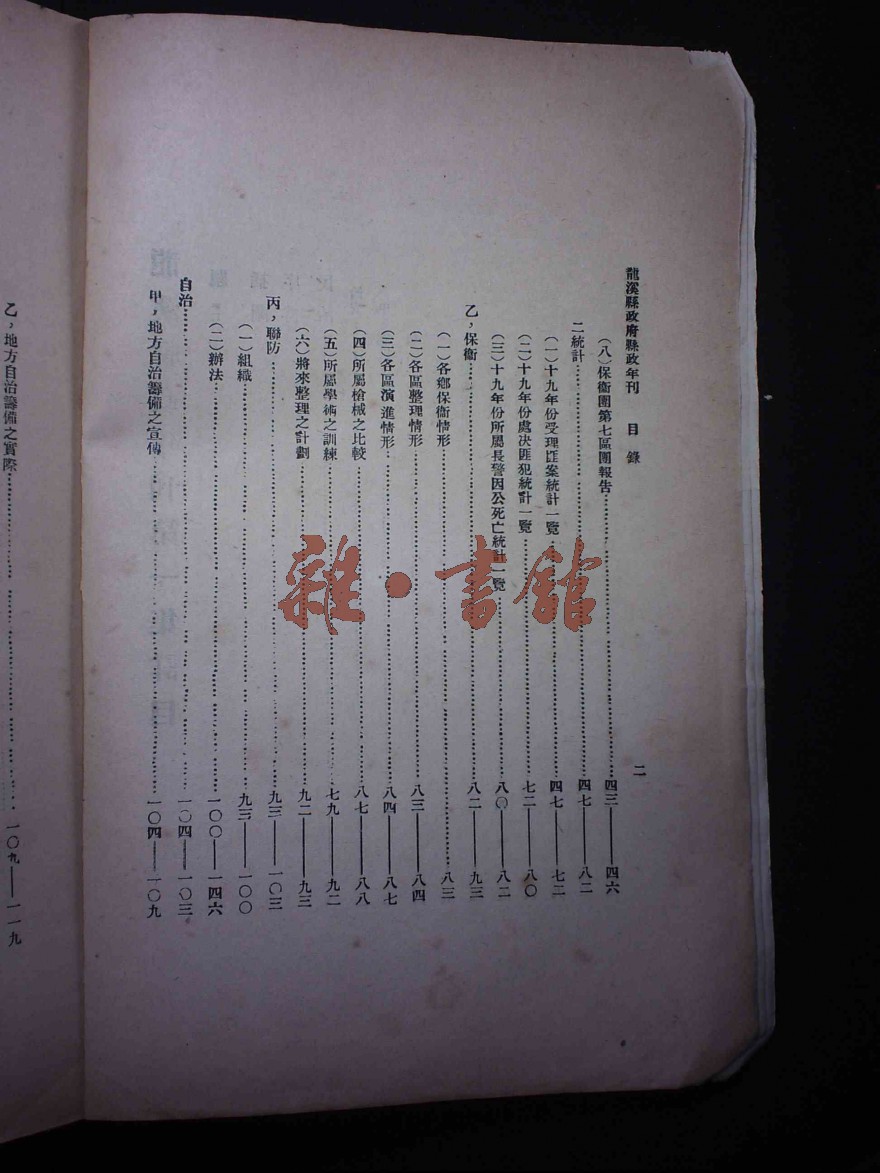 龍溪縣政府縣政年刊　目錄　二
（八）保衛團第七區團報告……四三——四六
二統計……四七——八二
（一）十九年份受理匪案統計一覽……四七——七二
（二）十九年份處决匪犯統計一覽……七二——八〇
（三）十九年份所屬長警因公死亡統計一覽……八〇——八二
乙，保衛……八二——九三
（一）各鄉保衛情形……八三
（二）各區整理情形……八三——八四
（三）各區演進情形……八四——八七
（四）所屬槍械之比較……八七——八八
（五）所屬學術之訓練……七九——九二
（六）將來整理之計劃……九二——九三
丙，聯防……九三——一〇三
（一）組織……九三——一〇〇
（二）辦法……一〇〇——一四六
自治……一〇四——一〇三
甲，地方自治籌備之宣傳……一〇四——一〇九
乙，地方自治籌備之實際……一〇九——一一九
雜·書館